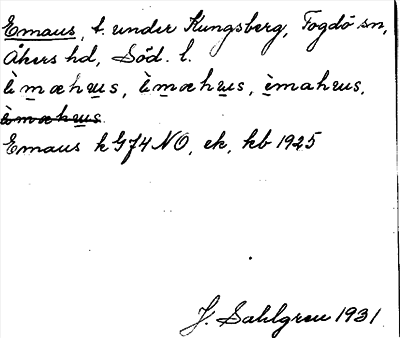 Emaus, t. under Kungsberg, Fogdö sn,
Åkers hd, Söd. l.
Emaus k G74 NO, ek, kb 1925
J. Sahlgren 1931